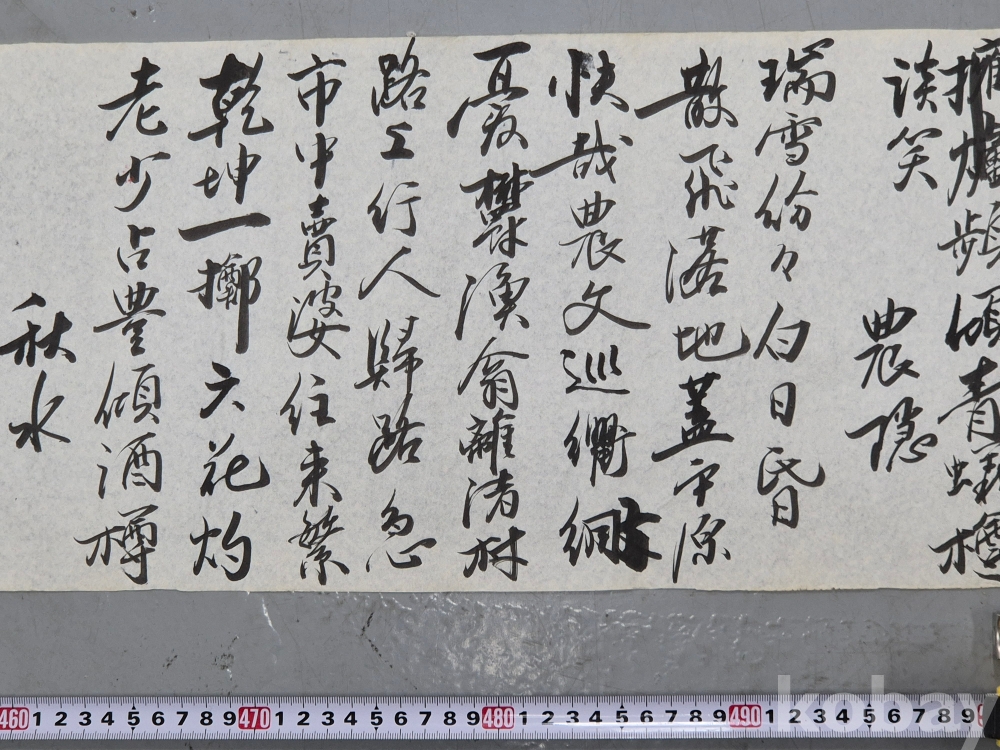 擁爐頻傾青
談笑
農隱
瑞雪份々白日昏
散飛落地蓋平原
快哉農文巡
憂欝漁翁離渚村
路上行人歸路急
市中賣婆往來繁
乾坤一擲六花灼
老少占豐傾酒樽
秋水
460 1 2 3 4 5 6 7 8 9 470 1 2 3 4 5 6 7 8 9 480 1 2 3 4 5 6 7 8 9 490 1 2 3 4 5 6 7 8 9
kobay